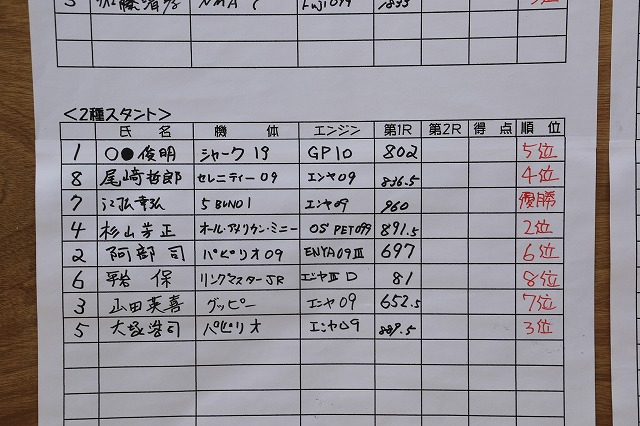 3 佐藤 NMA 1 Fuji099 1835
<2種スタント>
氏 名 機 体 エンジン 第1R 第2R 得 点 順 位
1 ○●俊明 シャーク 19 GP10 802 5位
8 尾崎哲郎 セレニティー09 エンヤ09 836.5 4位
7 幸弘 エンヤ09 960 優勝
4 杉山芳正 オール・アメリカン・ミニー OS PET099 891.5 2位
2 阿部 司 パピリオ09 ENYA09Ⅲ 697 6位
6 保 リングマスターJR エンヤⅢD 81 8位
3 山田英喜 グッピー エンヤ09 652.5 7位
5 大塚浩司 パピリオ エンヤ09 889.5 3位